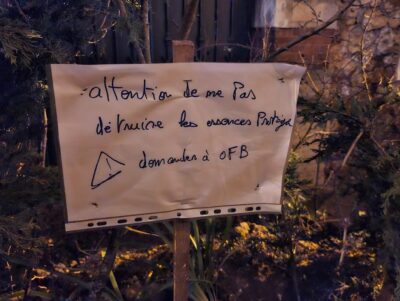 attention de ne Pas
détruire les essences Protégé
⚠ demander à OFB